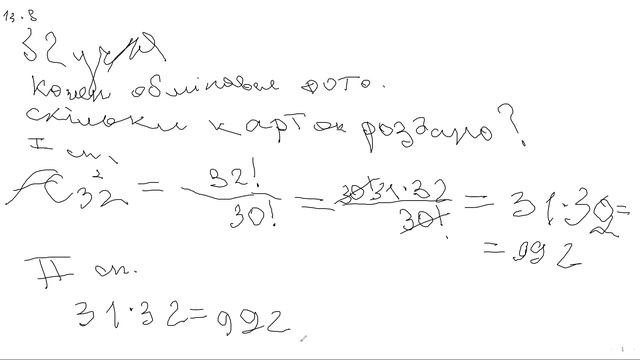 13.8
32 учня
кожен обмінював фото.
скільки карток роздано?
I сп.
A²₃₂ = 32!/30! = 30!31·32/30! = 31·32 =
= 992
II сп.
31·32=992
1